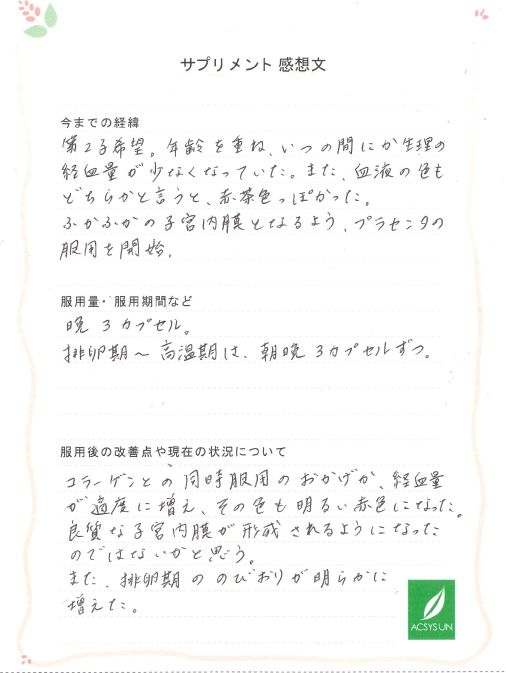 サプリメント 感想文
今までの経緯
第2子希望。年齢を重ね、いつの間にか生理の
経血量が少なくなっていた。また、血液の色も
どちらかと言うと、赤茶色っぽかった。
ふかふかの子宮内膜となるよう、プラセンタの
服用を開始。
服用量・服用期間など
晩 3カプセル。
排卵期〜高温期は、朝晩3カプセルずつ。
服用後の改善点や現在の状況について
コラーゲンとの同時服用のおかげか、経血量
が適度に増え、その色も明るい赤色になった。
良質な子宮内膜が形成されるようになった
のではないかと思う。
また、排卵期ののびおりが明らかに
増えた。
ACSYSUN